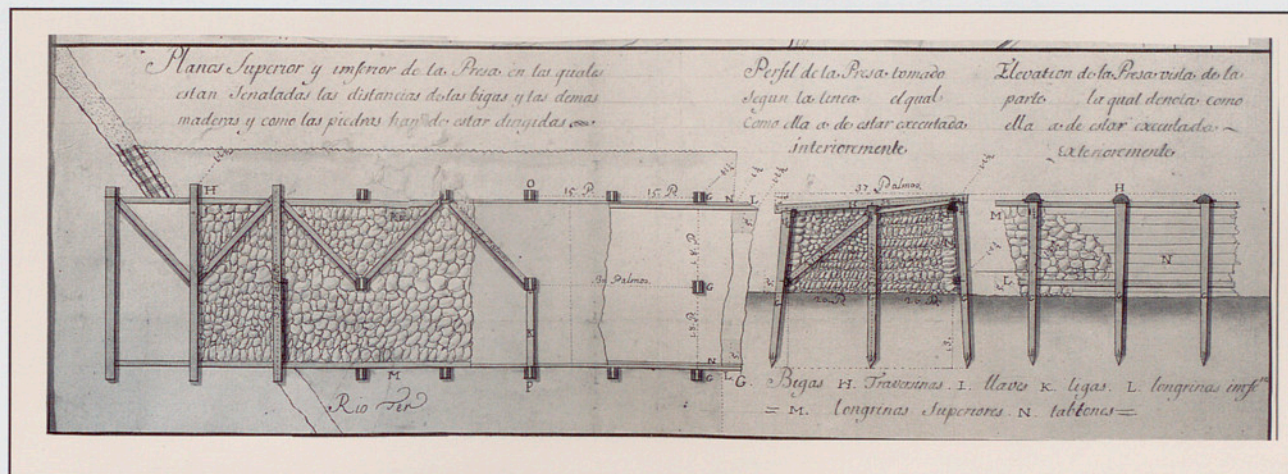 Planos Superior y imferior de la Presa en las quales
estan Senaladas las distancias de las bigas y las demas
maderas y como las piedras han de estar dirigidas
Perfil de la Presa tomado
Segun la linea elqual
Como ella a de estar executada
interioremente
Elevation de la Presa vista de la
parte la qual dencia como
ella a de estar executada
Exterioremente
H
O
15. P.
15. P.
G
N
L
37. Palmos
H
M
30 Palmos
G
K
N
L
20. P.
20. P.
N
M
P
G
L
G.
Rio Ter
Bigas H. Traversinas. I. llaves K. ligas. L. longrinas imfe.
= M. longrinas Superiores. N. tablones=